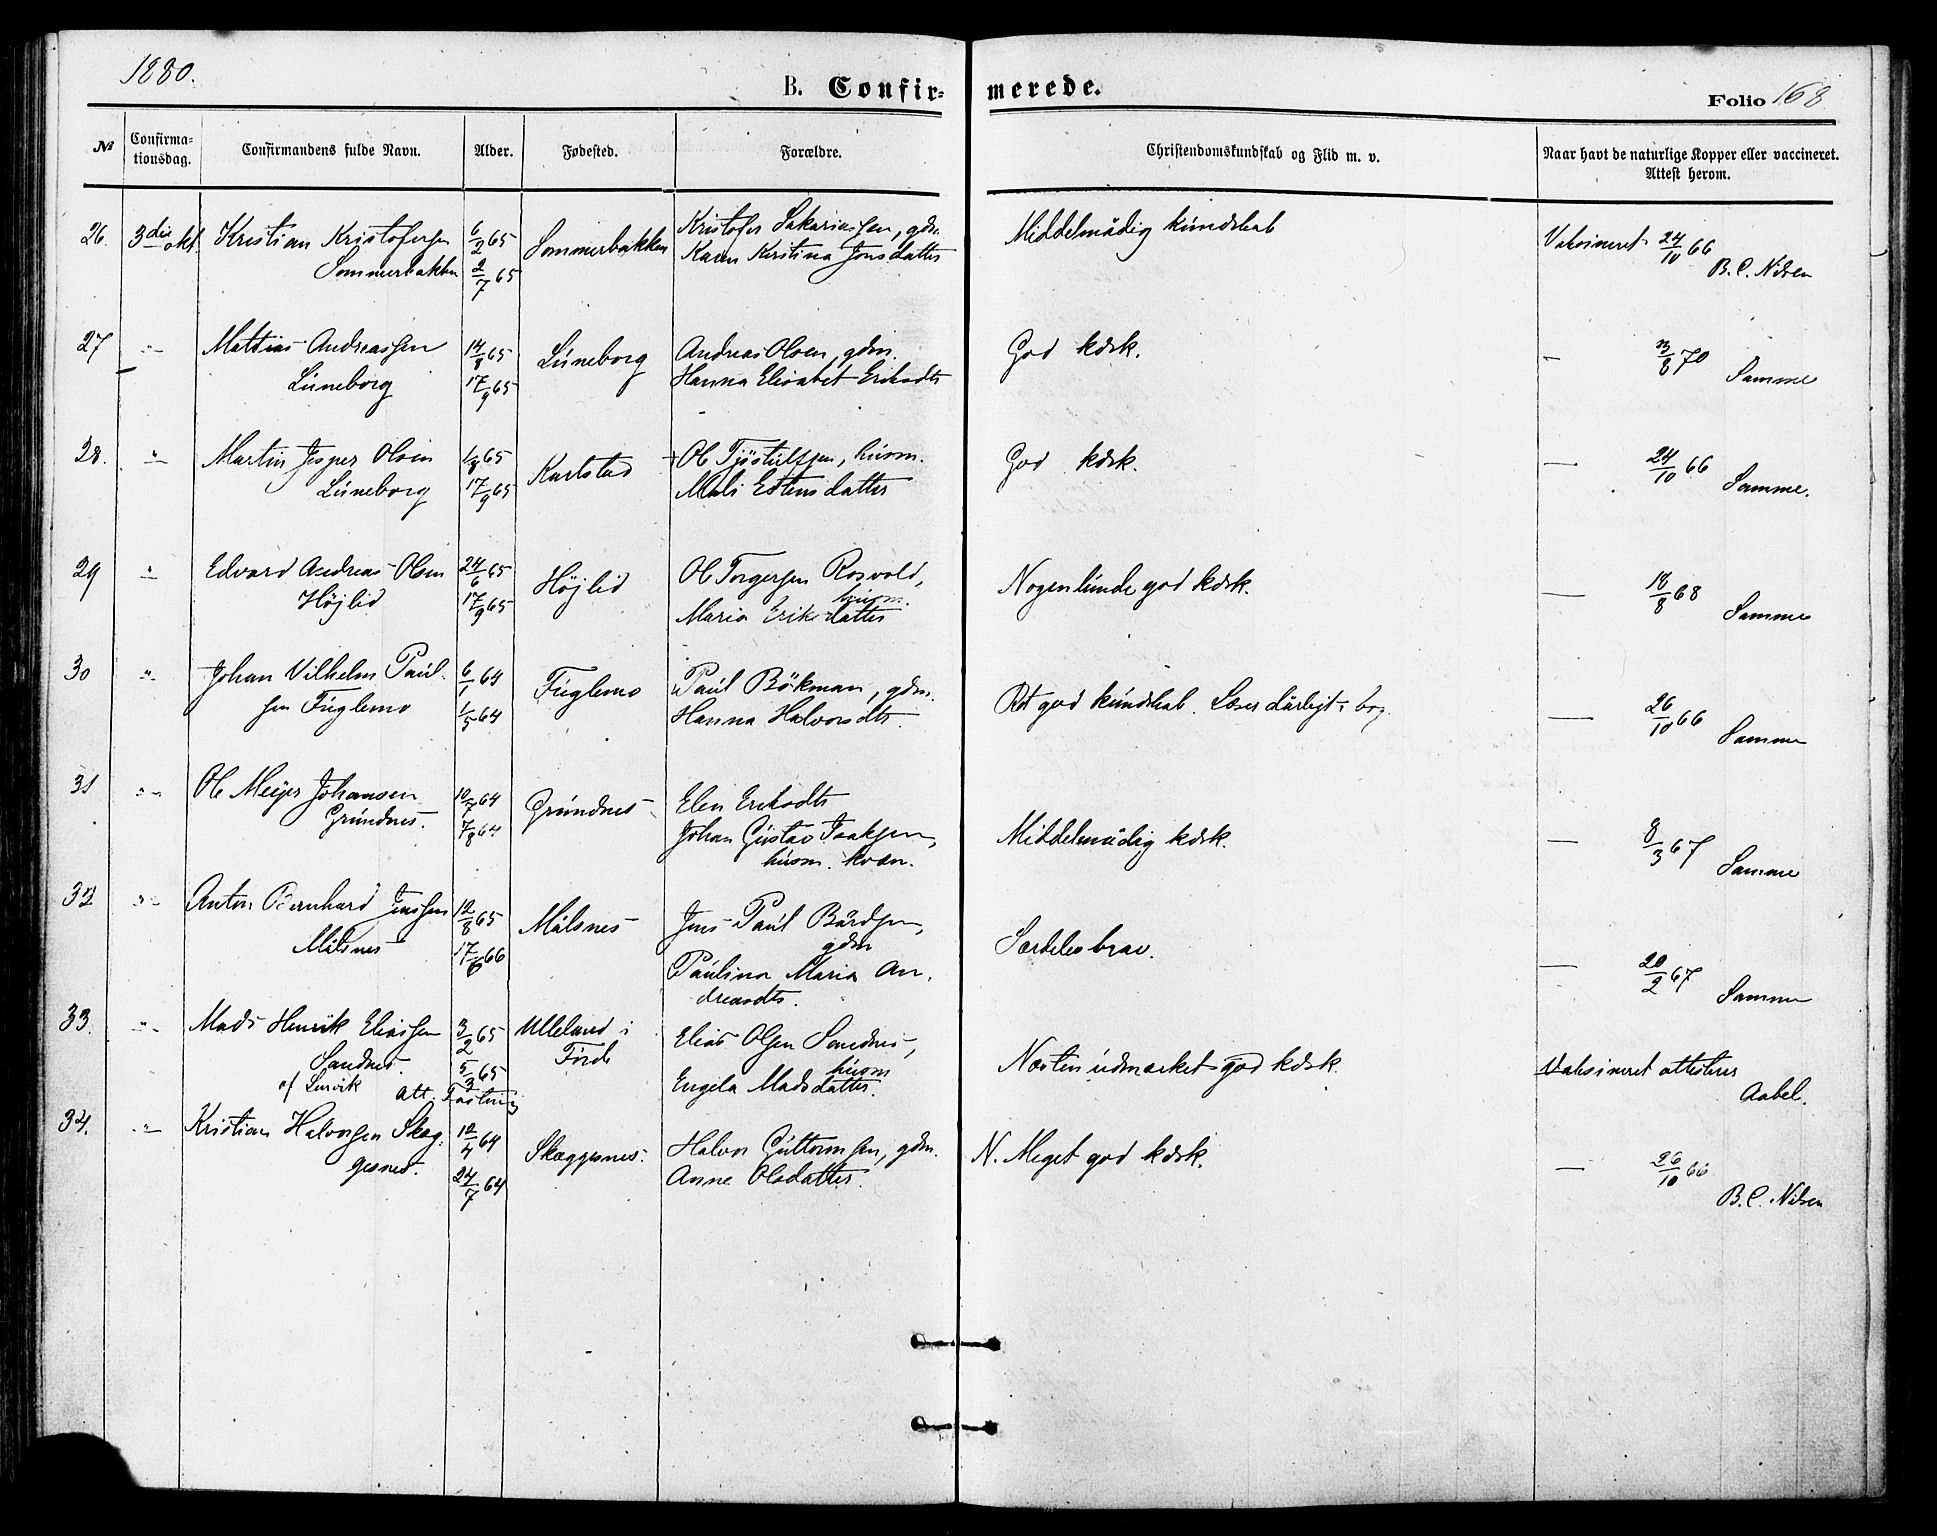 1880.
B. Confirmerede.
Folio 168
№ Confirmationsdag. Confirmandens fulde Navn. Alder. Fødested. Forældre. Christendomskundskab og Flid m. v. Naar havt de naturlige Kopper eller vaccineret. Attest herom.
26. 3die okt Kristian Kristofersen 6/2 65 Sommerbakken Kristofer Sakariassen, gdm. Middelmådig kundskab Vaksineret 24/10 66
Sommerbakken 2/7 65 Karen Kristina Jonsdatter B. C. Nilsen
27 -"- Mattias Andreassen 14/8 65 Luneborg Andreas Olsen, gdm. God kdsk. — 13/8 70
Luneborg 17/9 65 Hanna Elisabet Eriksdtr Samme
28. -"- Martin Jesper Olsen 1/8 65 Karlstad Ole Tjöstulfsen, husm. God kdsk. — 24/10 66
Luneborg 17/9 65 Mali Estensdatter Samme.
29 -"- Edvard Andreas Olsen 24/6 65 Höjlid Ole Torgersen Rosvold, Nogenlunde god kdsk. — 18/8 68
Höjlid 17/9 65 husm.
Maria Eriksdatter Samme
30 -"- Johan Vilhelm Paul- 6/1 64 Fuglemo Paul Bökman, gdm. Ret god kundskab. Læser dårligt i bog. — 26/10 66
sen Fuglemo 1/5 64 Hanna Halvorsdtr. Samme
31 -"- Ole Meijer Johansen 10/7 64 Grundnes Elen Eriksdtr
Grundnes. 7/8 64 Johan Gustav Isaksen, Middelmådig kdsk. — 8/3 67
husm. kvæn. Samme
32 -"- Anton Bernhard Jenssen 12/8 65 Målsnes Jens Paul Bårdsen, Særdeles brav.
Målsnes 17/6 66 gdm — 20/2 67
Paulina Maria An- Samme
dreasdtr.
33. -"- Mads Henrik Eliassen 3/2 65 Ulleland i Elias Olsen Sandnes,
Sandnes. 5/3 65 Förde husm Næsten udmærket god kdsk. Vaksineret attesterer
af Lenvik Att. Engela Madsdatter. Aabel.
34. -"- Kristian Halvorsen Skog- 12/4 64 Skoggesnes. Halvor Guttormsen, gdm. N. Meget god kdsk. — 26/10 66
gesnes. 24/7 64 Anne Olsdatter. B. C. Nilsen